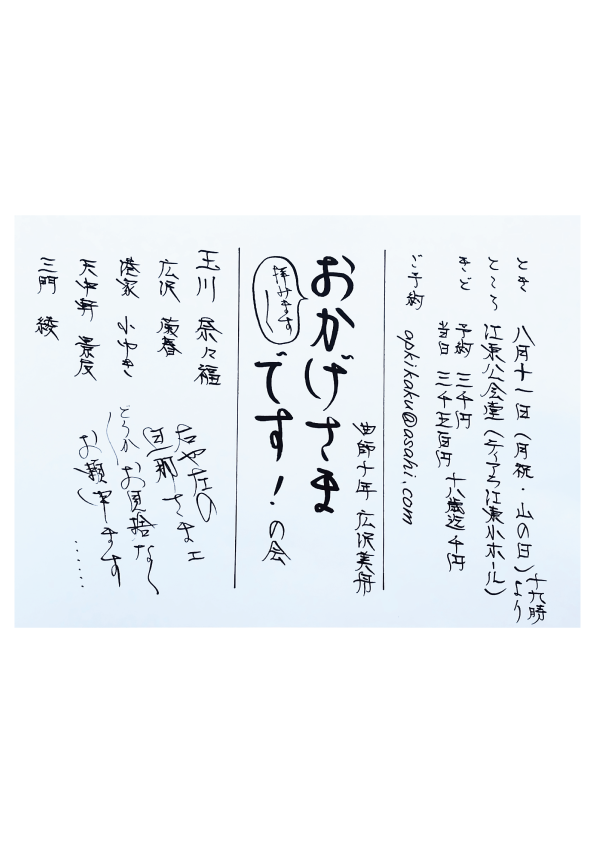 とき　八月十一日(月祝・山の日)十九時より
ところ　江東公会堂(ティアラ江東小ホール)
きど　予約　三千円　十八歳迄　千円
当日　三千五百円
ご予約　opkikaku@asahi.com
曲師十年　広沢美舟
おかげさま
です!の会
拝みます〜
玉川　奈々福
広沢　菊春
港家　小ゆき
天中軒　景友
三門　綾
右や左の
旦那さまェ
どうか　お見捨なく
お願申ます
……